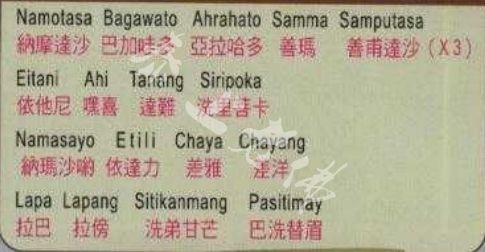 Namotasa Bagawato Ahrahato Samma Samputasa
納摩達沙 巴加哇多 亞拉哈多 善瑪 善甫達沙 (X3)
Eitani Ahi Tanang Siripoka
依他尼 嘿喜 達難 洗里菩卡
Namasayo Etili Chaya Chayang
納瑪沙喲 依達力 差雅 差洋
Lapa Lapang Sitikanmang Pasitimay
拉巴 拉傍 洗弟甘芒 巴洗替眉